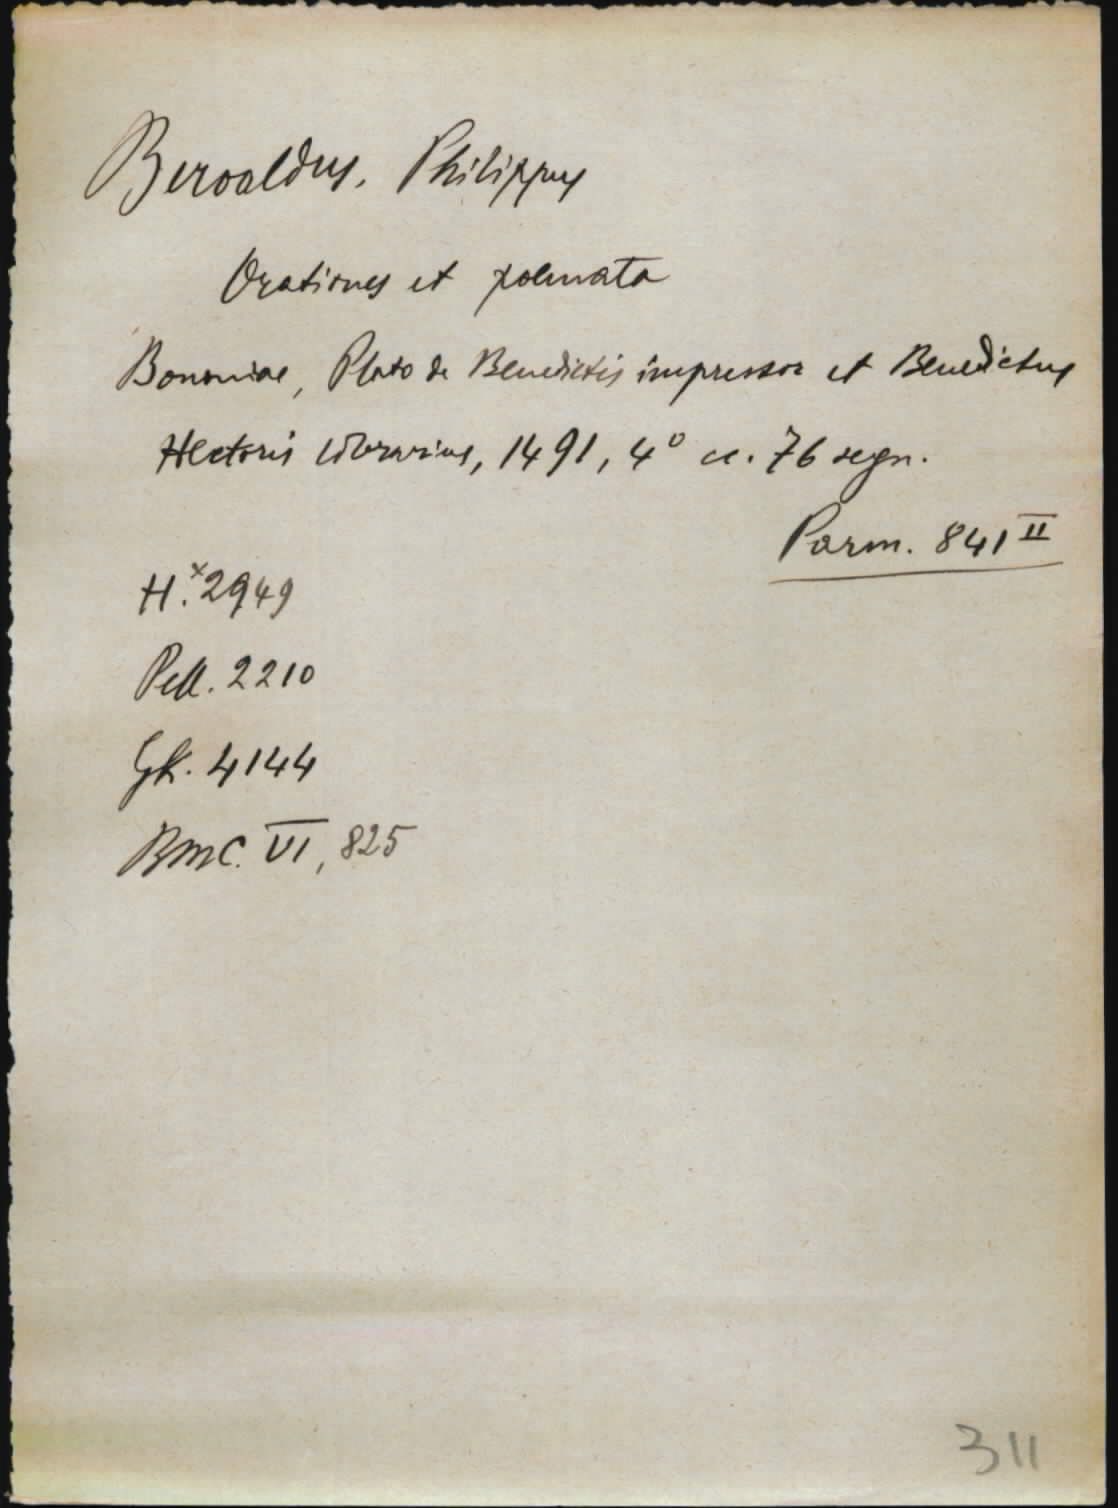 Beroaldus, Philippus
Orationes et poemata
Bononiae, Plato de Benedictis impressor et Benedictus
Hectoris librarius, 1491, 4° cc. 76 segn.
Parm. 841 II
H.ˣ 2949
Pell. 2210
Gk. 4144
BMC. VI, 825
311